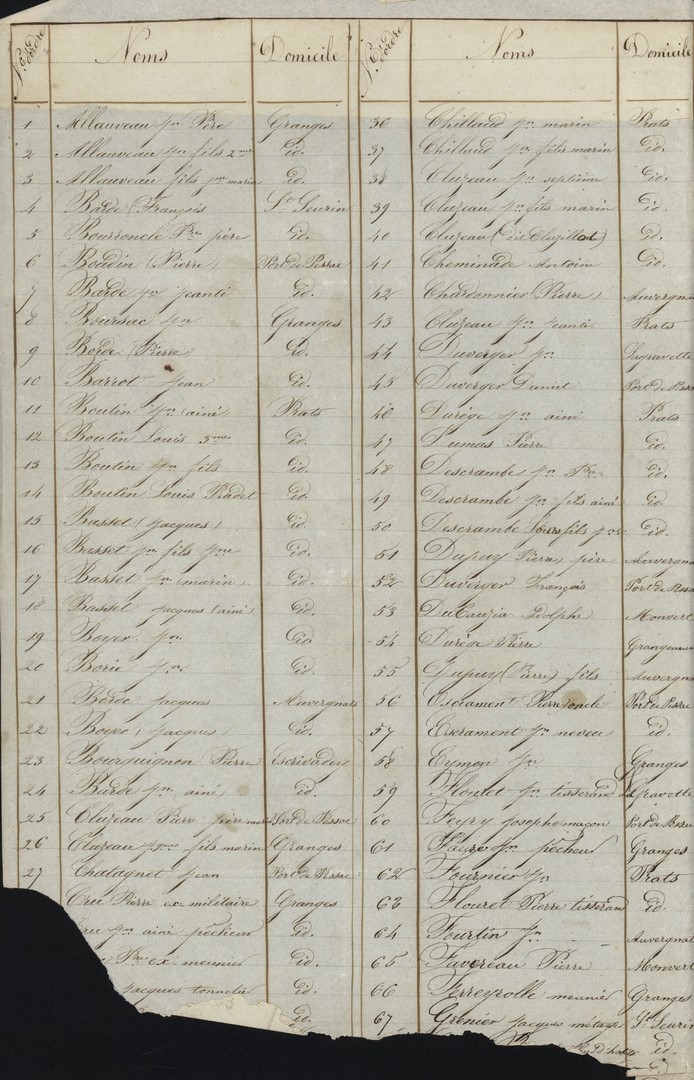 N.° d'ordre Noms Domicile
1 Allauveau jn Père Granges
2 Allauveau jn fils 2me id.
3 Allauveau fils jne marin id.
4 Barde (François) St Seurin
5 Bourroncle Pre père id.
6 Boudin (Pierre) Port de Pessac
7 Barde jn jeanti id.
8 Boursac jn Granges
9 Borde (Pierre) id.
10 Barrot Jean id.
11 Boutin jn (ainé) Prats
12 Boutin Louis 3me id.
13 Boutin jn fils id.
14 Boutin Louis Pradel id.
15 Basset (Jacques) id.
16 Basset jn fils jne id.
17 Basset jn (marin) id.
18 Basset jacques (ainé) id.
19 Boyer jn id
20 Borie jn id.
21 Borde Jacques Auvergnats
22 Boyer Jacques id.
23 Bourguignon Pierre Escrivadey
24 Barde jn ainé id.
25 Cluzeau Pierre père marin Port de Pessac
26 Cluzeau jne fils marin Granges
27 Chatagnet Jean Port de Pessac
Cru Pierre ex militaire Granges
Cru jn ainé pêcheur id.
Pre ex meunier id.
jacques tonnelier id.
id.
N.° d'ordre Noms Domicile
36 Chillaud jn marin Prats
37 Chillaud jn fils marin id.
38 Cluzeau jn septième id.
39 Cluzeau jn fils marin id.
40 Cluzeau (dit Cluzillot) id.
41 Cheminade Antoine id.
42 Chardonnier (Pierre) Auvergna
43 Cluzeau jn jeanti Prats
44 Duverger jn Lagravette
45 Duverger Daniel Port de Pessa
46 Durège jn ainé Prats
47 Dumas Pierre id.
48 Descrambe jn Pre id.
49 Descrambe jn fils ainé id.
50 Descrambe Louis fils jne id.
51 Dupuy Pierre père Auvergna
52 Duverger François Port de Pessa
53 DuCauzia Adolphe Monvert
54 Durège Pierre Grangeneuve
55 Dupuy (Pierre) fils Auvergna
56 Escrament Pierre oncle Port de Pessac
57 Escrament jn neveu id.
58 Eymon jn Granges
59 Flouret jn tisserand LaGravette
60 Feyry Joseph maçon Port de Pessac
61 Faure jn pêcheur Granges
62 Fournier jn Prats
63 Flouret Pierre tisserand id.
64 Fourtin jn Auvergnat
65 Favereau Pierre Monvert
66 Ferreyrolle meunier Granges
67 Grenier Jacques métayer St Seurin
id.
id.